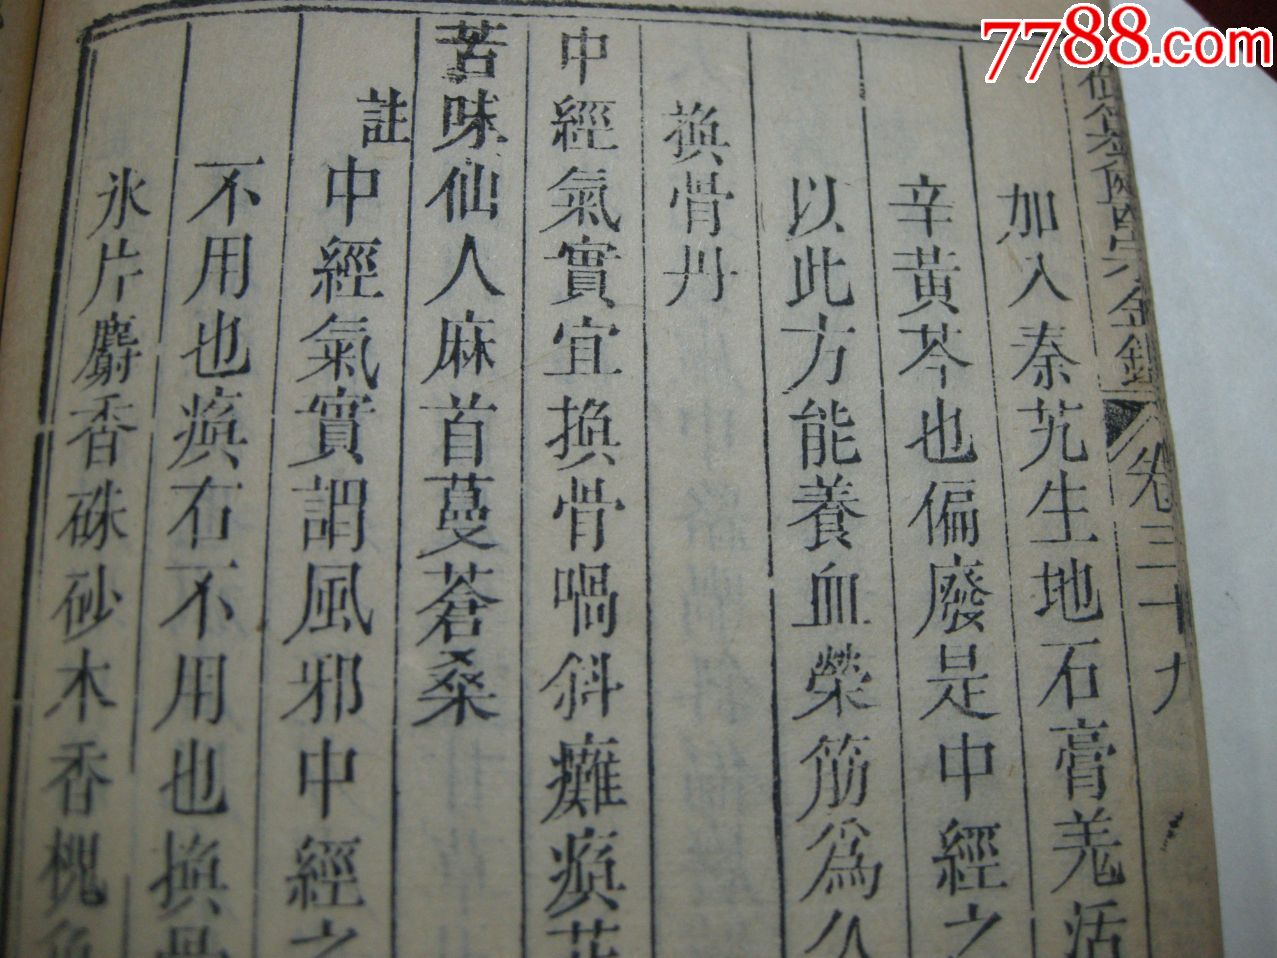 7788.com
御纂醫宗金鑑 卷三十九
加入秦艽生地石膏羗活
辛黃芩也偏廢是中經之
以此方能養血榮筋爲久
換骨丹
中經氣實宜換骨喎斜癱瘓芪
苦味仙人麻首蔓蒼桑
註中經氣實謂風邪中經之
不用也瘓右不用也換骨
氷片麝香硃砂木香槐角